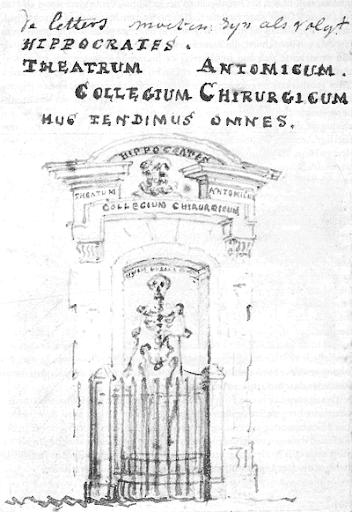 de letters moeten zyn als volgt
HIPPOCRATES.
THEATRUM ANTOMICUM.
COLLEGIUM CHIRURGICUM
HUC TENDIMUS OMNES.
HIPPOCRATES
THEATUM ANTOMICUM
COLLEGIUM CHIRURGICUM